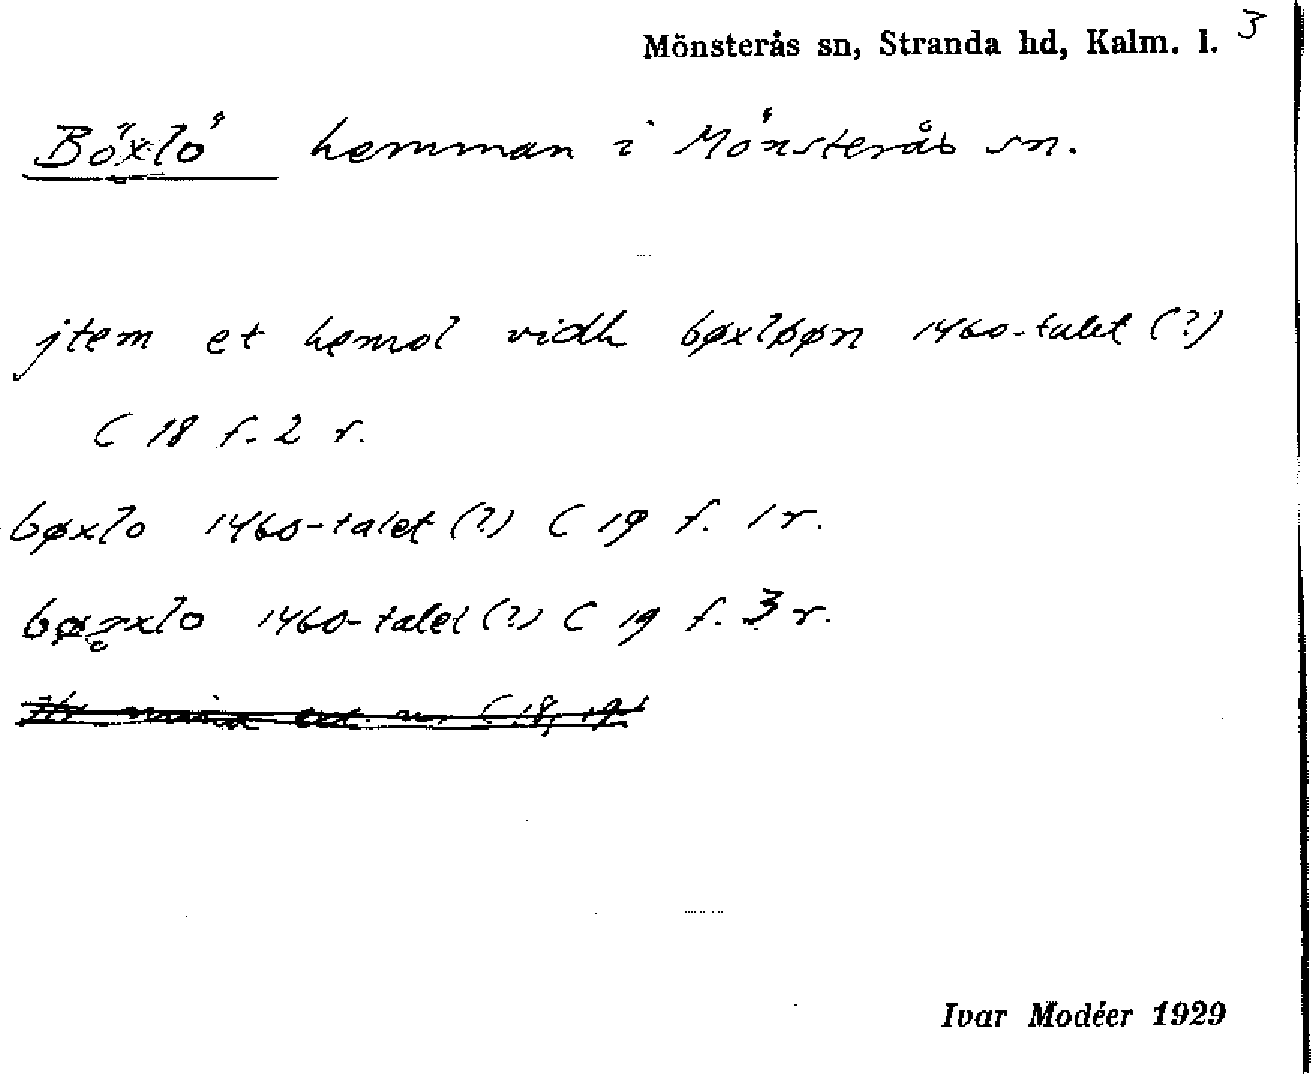 Mönsterås sn, Stranda hd, Kalm. l. 3
Böxlö hemman i Mönsterås sn.
jtem et hemol vidh bøxløøn 1460-talet (?)
C 18 f. 2 r.
bøxlo 1460-talet (?) C 19 f. 1 r.
1460-talet (?) C 19 f. 3 r.
C 18, 19
Ivar Modéer 1929